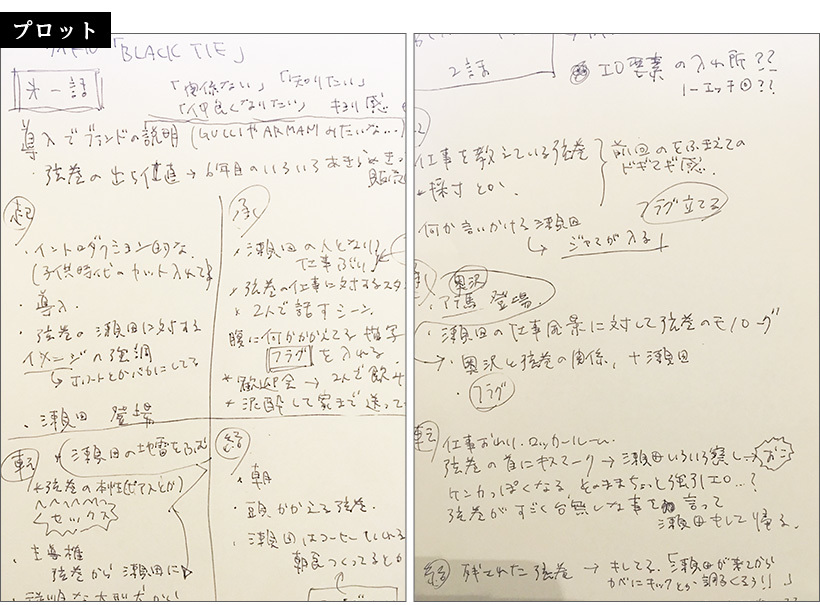 プロット
タイトル「BLACK TIE」
第一話
「関係ない」「知りたい」
「仲良くなりたい」 キョリ感
導入でブランドの説明(GUCCIやARMANIみたいな…)
・弦巻の立ち位置→6年目の
起
・イントロダクション的な
(子供時代のカット入れて)
・導入
・弦巻の瀬田に対する
イメージの強調
・瀬田 登場
承
*瀬田の人となり
仕事ぶり
*弦巻の仕事に対するスタ
*2人で話すシーン
腹に何かかかえてる描写
フラグを入れる
*歓迎会→2人で飲み
*泥酔して家まで送って
転
*瀬田の地雷をふむ
*弦巻の本性(ピアスとか)
セックス
・主導権
弦巻から瀬田に
結
・朝
・頭かかえる弦巻
・瀬田はコーヒーをいれる
朝食つくってるとか
2話
エロ要素の入れ所??
1エッチ??
仕事を教えている弦巻
*採寸とか
前回のをふまえての
ドギマギ感
何か言いかける瀬田
フラグ立てる
→ジャマが入る!
承
奥沢
登場
・瀬田の仕事風景に対して弦巻のモノローグ
・奥沢と弦巻の関係、+瀬田
・フラグ
転
仕事おわり、ロッカールーム
弦巻の首にキスマーク→瀬田いろいろ察し→
ケンカっぽくなる そのままちょっと強引エロ…?
弦巻がすごく台無しな事を言って
瀬田 帰る
結
残された弦巻